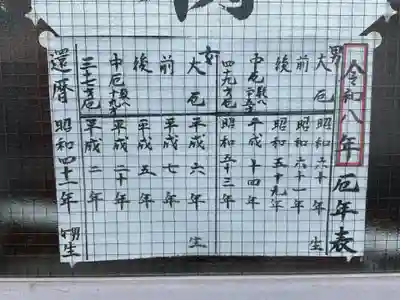 令和八年 厄年表
男
大厄 昭和六十年 生
前 昭和六十一年
後 昭和五十九年
中厄 平成十四年
四十九才厄 昭和五十三年
女
大厄 平成六年 生
前 平成七年
後 平成五年
中厄 数へ十九才 平成二十年
三十七才厄 平成二年
還暦 昭和四十一年 生